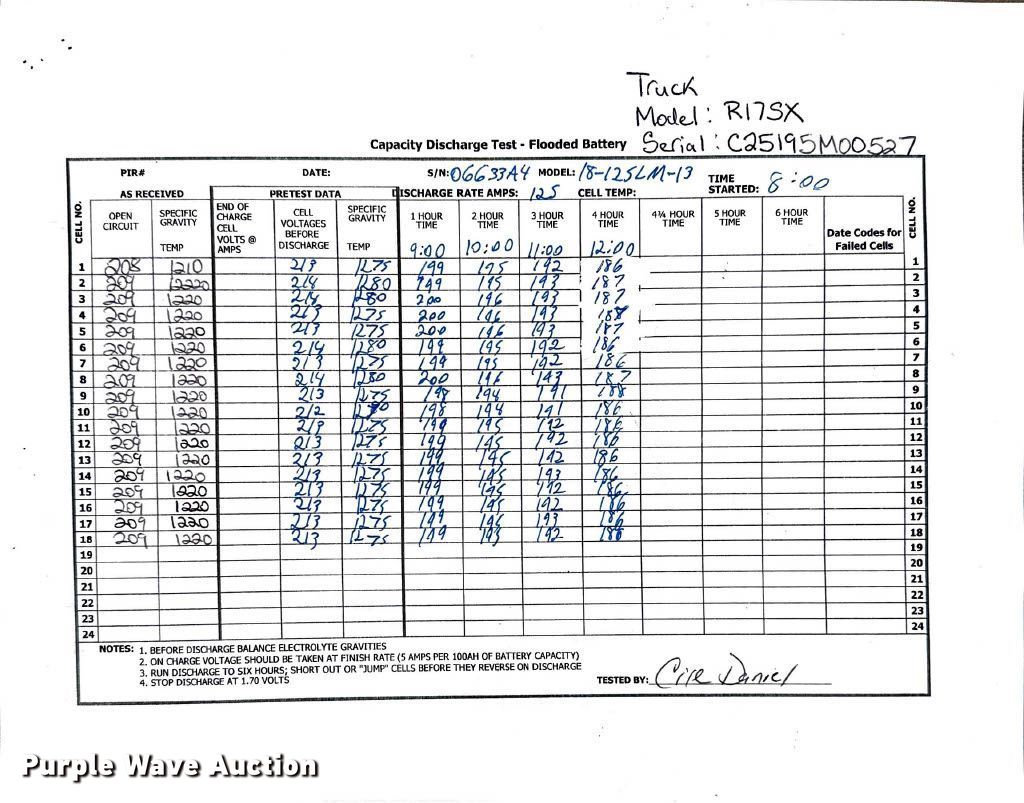 Truck
Model: R17SX
Serial: C25195M00527
Capacity Discharge Test - Flooded Battery
PIR# DATE: S/N: 06633A4 MODEL: 18-125LM-13 TIME STARTED: 8:00
AS RECEIVED PRETEST DATA DISCHARGE RATE AMPS: 125 CELL TEMP:
CELL NO. OPEN CIRCUIT SPECIFIC GRAVITY TEMP END OF CHARGE CELL VOLTS @ AMPS CELL VOLTAGES BEFORE DISCHARGE SPECIFIC GRAVITY TEMP 1 HOUR TIME 2 HOUR TIME 3 HOUR TIME 4 HOUR TIME 4¾ HOUR TIME 5 HOUR TIME 6 HOUR TIME Date Codes for Failed Cells CELL NO.
9:00 10:00 11:00 12:00
1 208 1210 213 1275 199 195 192 186 1
2 209 12220 214 1280 199 195 193 187 2
3 209 1220 214 1280 200 196 193 187 3
4 209 1220 213 1275 200 196 193 188 4
5 209 1220 213 1275 200 196 193 187 5
6 209 1220 214 1280 199 195 192 186 6
7 209 1220 213 1275 199 195 192 186 7
8 209 1220 214 1280 200 196 193 187 8
9 209 1220 213 1275 198 194 191 188 9
10 209 1220 212 198 194 191 186 10
11 209 1220 213 1275 199 195 192 186 11
12 209 1220 213 1275 199 195 192 186 12
13 209 1220 213 1275 199 195 192 186 13
14 209 1220 213 1275 199 195 193 186 14
15 209 1220 213 1275 199 195 192 186 15
16 209 1220 213 1275 199 195 192 186 16
17 209 1220 213 1275 199 196 193 186 17
18 209 1220 213 1275 199 193 192 186 18
19 19
20 20
21 21
22 22
23 23
24 24
NOTES: 1. BEFORE DISCHARGE BALANCE ELECTROLYTE GRAVITIES
2. ON CHARGE VOLTAGE SHOULD BE TAKEN AT FINISH RATE (5 AMPS PER 100AH OF BATTERY CAPACITY)
3. RUN DISCHARGE TO SIX HOURS; SHORT OUT OR "JUMP" CELLS BEFORE THEY REVERSE ON DISCHARGE
4. STOP DISCHARGE AT 1.70 VOLTS
TESTED BY: Daniel
Purple Wave Auction